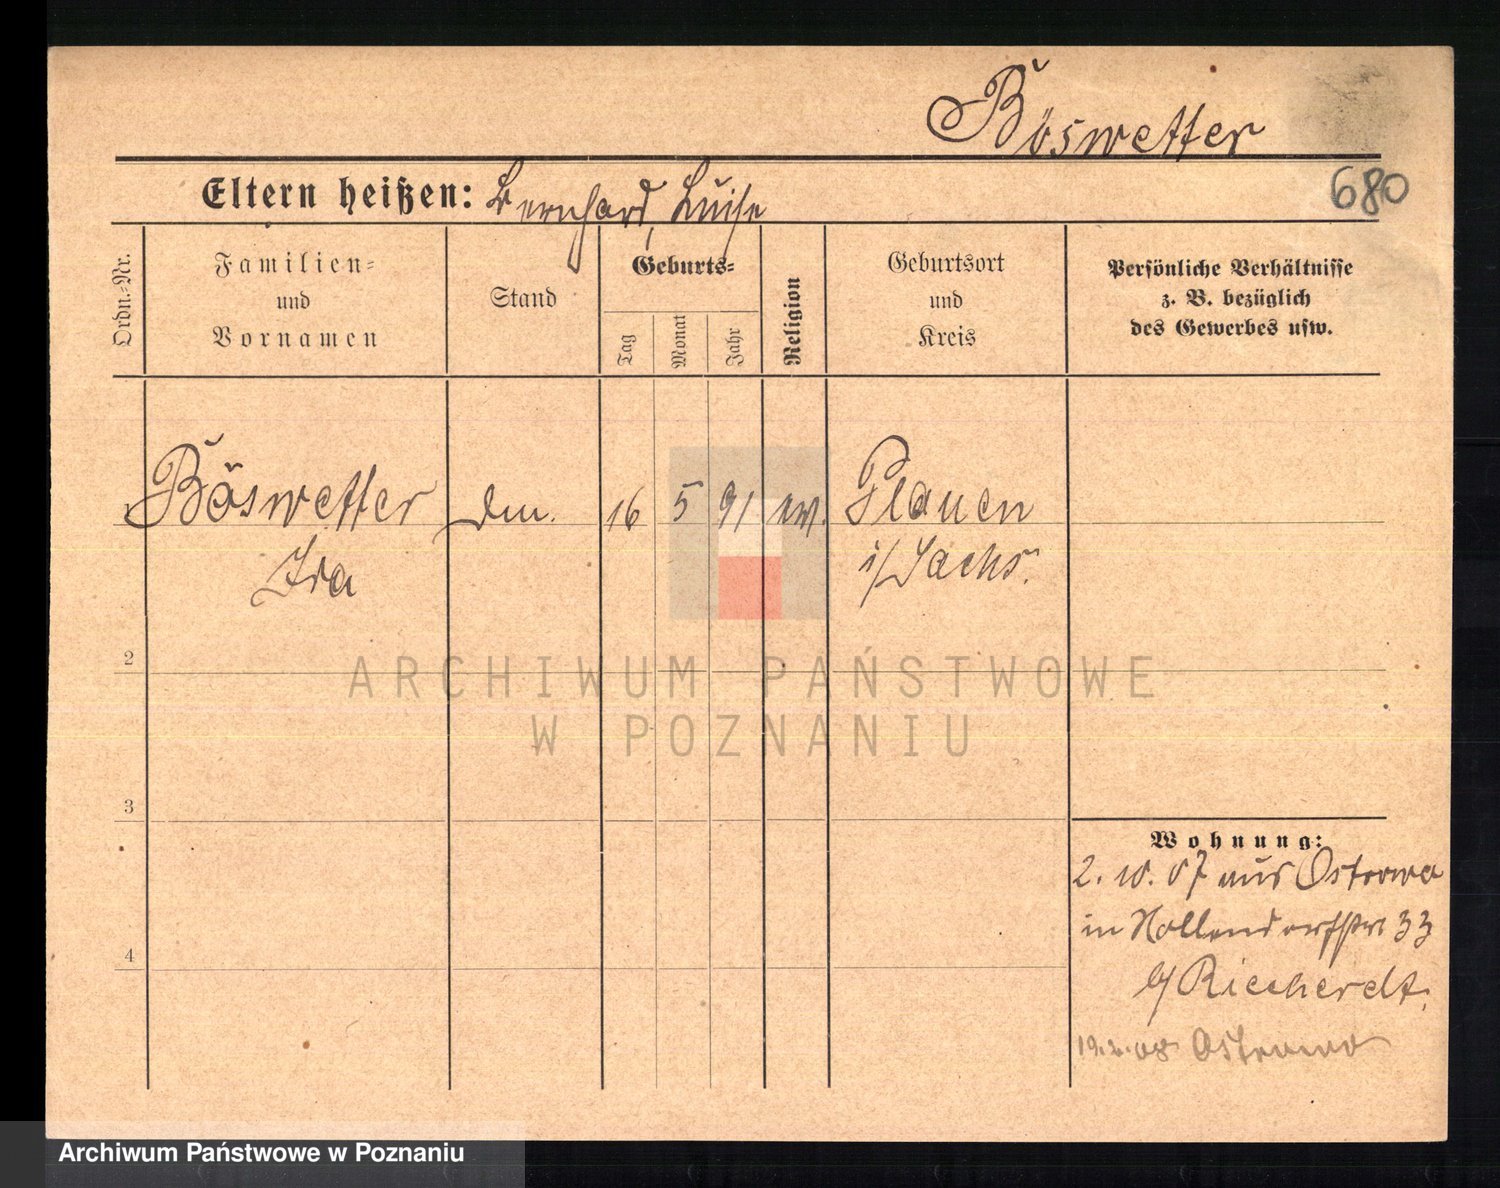 Böswetter
680
Eltern heißen: Bernhard, Luise
Ordn.-Nr.
Familien-
und
Vornamen
Stand
Geburts-
Tag
Monat
Jahr
Religion
Geburtsort
und
Kreis
Persönliche Verhältnisse
z. B. bezüglich
des Gewerbes usw.
1 Böswetter 16 5 91 ev. Plauen
Ida i/Sachs.
2
3
4
Wohnung:
2. 10. 07 aus Ostrowo
in Nollendorfstr 33
b/
19.2.08 Ostrowo
ARCHIWUM PAŃSTWOWE
W POZNANIU
Archiwum Państwowe w Poznaniu